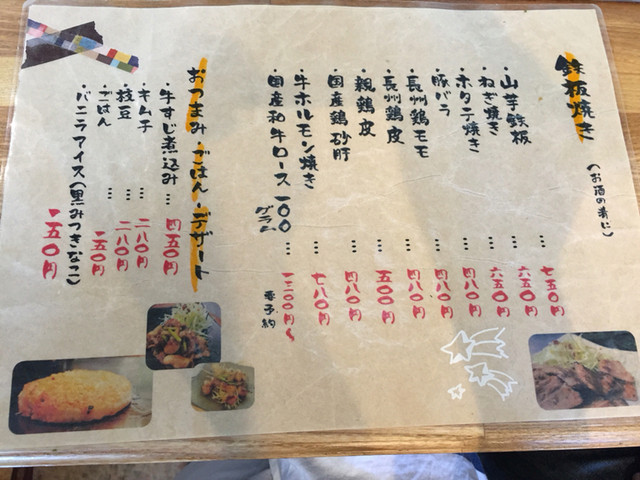 鉄板焼き
(お酒の肴に)
・山芋鉄板 … 七五〇円
・ねぎ焼き … 六五〇円
・ホタテ焼き … 六五〇円
・豚バラ … 四八〇円
・長州鶏モモ … 四八〇円
・長州鶏皮 … 四八〇円
・親鶏皮 … 五〇〇円
・国産鶏砂肝 … 四八〇円
・牛ホルモン焼き … 七八〇円
・国産和牛ロース一〇〇グラム … 一二〇〇円〜
要予約
おつまみ・ごはん・デザート
・牛すじ煮込み … 四五〇円
・キムチ … 二八〇円
・枝豆 … 二八〇円
・ごはん … 一五〇円
・バニラアイス(黒みつきなこ)
一五〇円